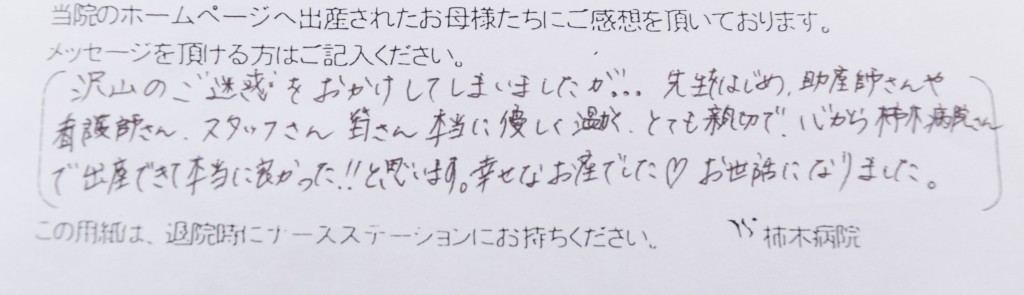 当院のホームページへ出産されたお母様たちにご感想を頂いております。
メッセージを頂ける方はご記入ください。
沢山のご迷惑をおかけしてしまいましたが... 先生はじめ、助産師さんや
看護師さん、スタッフさん 皆さん 本当に優しく温かく、とても親切で、心から柿木病院さん
で出産できて本当に良かった!!と思います。幸せなお産でした♡ お世話になりました。
この用紙は、退院時にナースステーションにお持ちください。 柿木病院